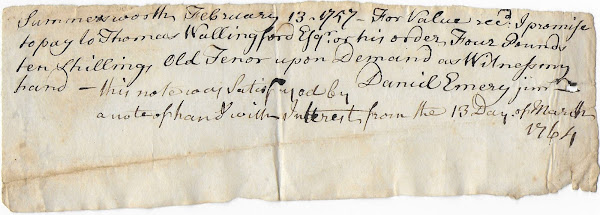 Summersworth February 13-1757 - For Value recd. I promise
to pay to Thomas Wallingford Esqr. or his order Four Pounds
ten Shillings Old Tenor upon Demand as Witness my
hand - Daniel Emery junr
this note was Satisfyed by
a note of hand with Interest from the 13 Day of March
1764